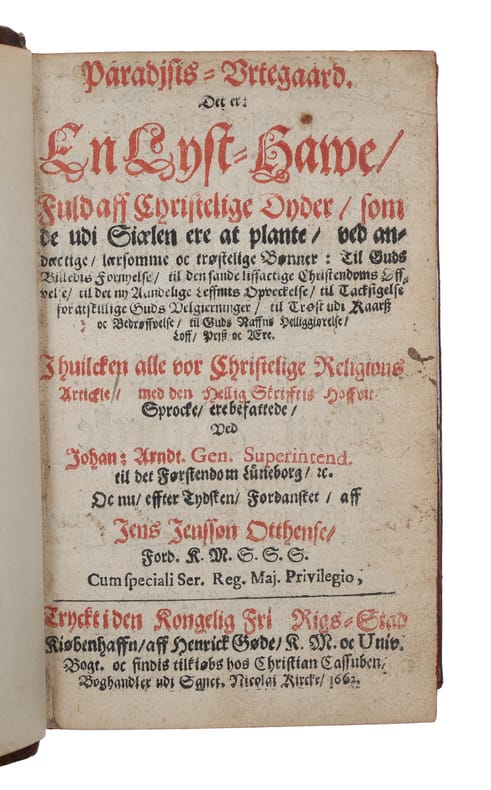 Paradjsis-Vrtegaard.
Det er:
En Lyst-Hawe/
Fuld aff Christelige Dyder/ som
de udi Siælen ere at plante/ ved an-
dæctige/ lærsomme oc trøstelige Bønner: Til Guds
Billedis Fornyelse/ til den sande liffactige Christendoms Øff-
velse/ til det ny Aandelige Leffnits Opveckelse/ til Tacksigelse
for atskillige Guds Velgierninger/ til Trøst udi Kaarß
oc Bedrøffvelse/ til Guds Naffns Helliggiørelse/
Loff/ Prjß oc Ære.
I huilcken alle vor Christelige Religions
Artickle/ med den Hellig Skrifftis Hoffvit-
Sprocke/ ere befattede/
Ved
Johan: Arndt. Gen. Superintend.
til det Førstendom Lüneborg/ ꝛc.
Oc nu/ effter Tydsken/ Fordansket/ aff
Jens Jenssøn Otthense/
Ford. K. M. S. S. S.
Cum speciali Ser. Reg. Maj. Privilegio,
Tryckt i den Kongelig Fri Rigs-Stad
Kiøbenhaffn/ aff Henrick Gøde/ K. M. oc Univ.
Bogt. oc findis tilkiøbs hos Christian Cassuben/
Boghandler udi Sanct. Nicolai Kircke/ 1662.